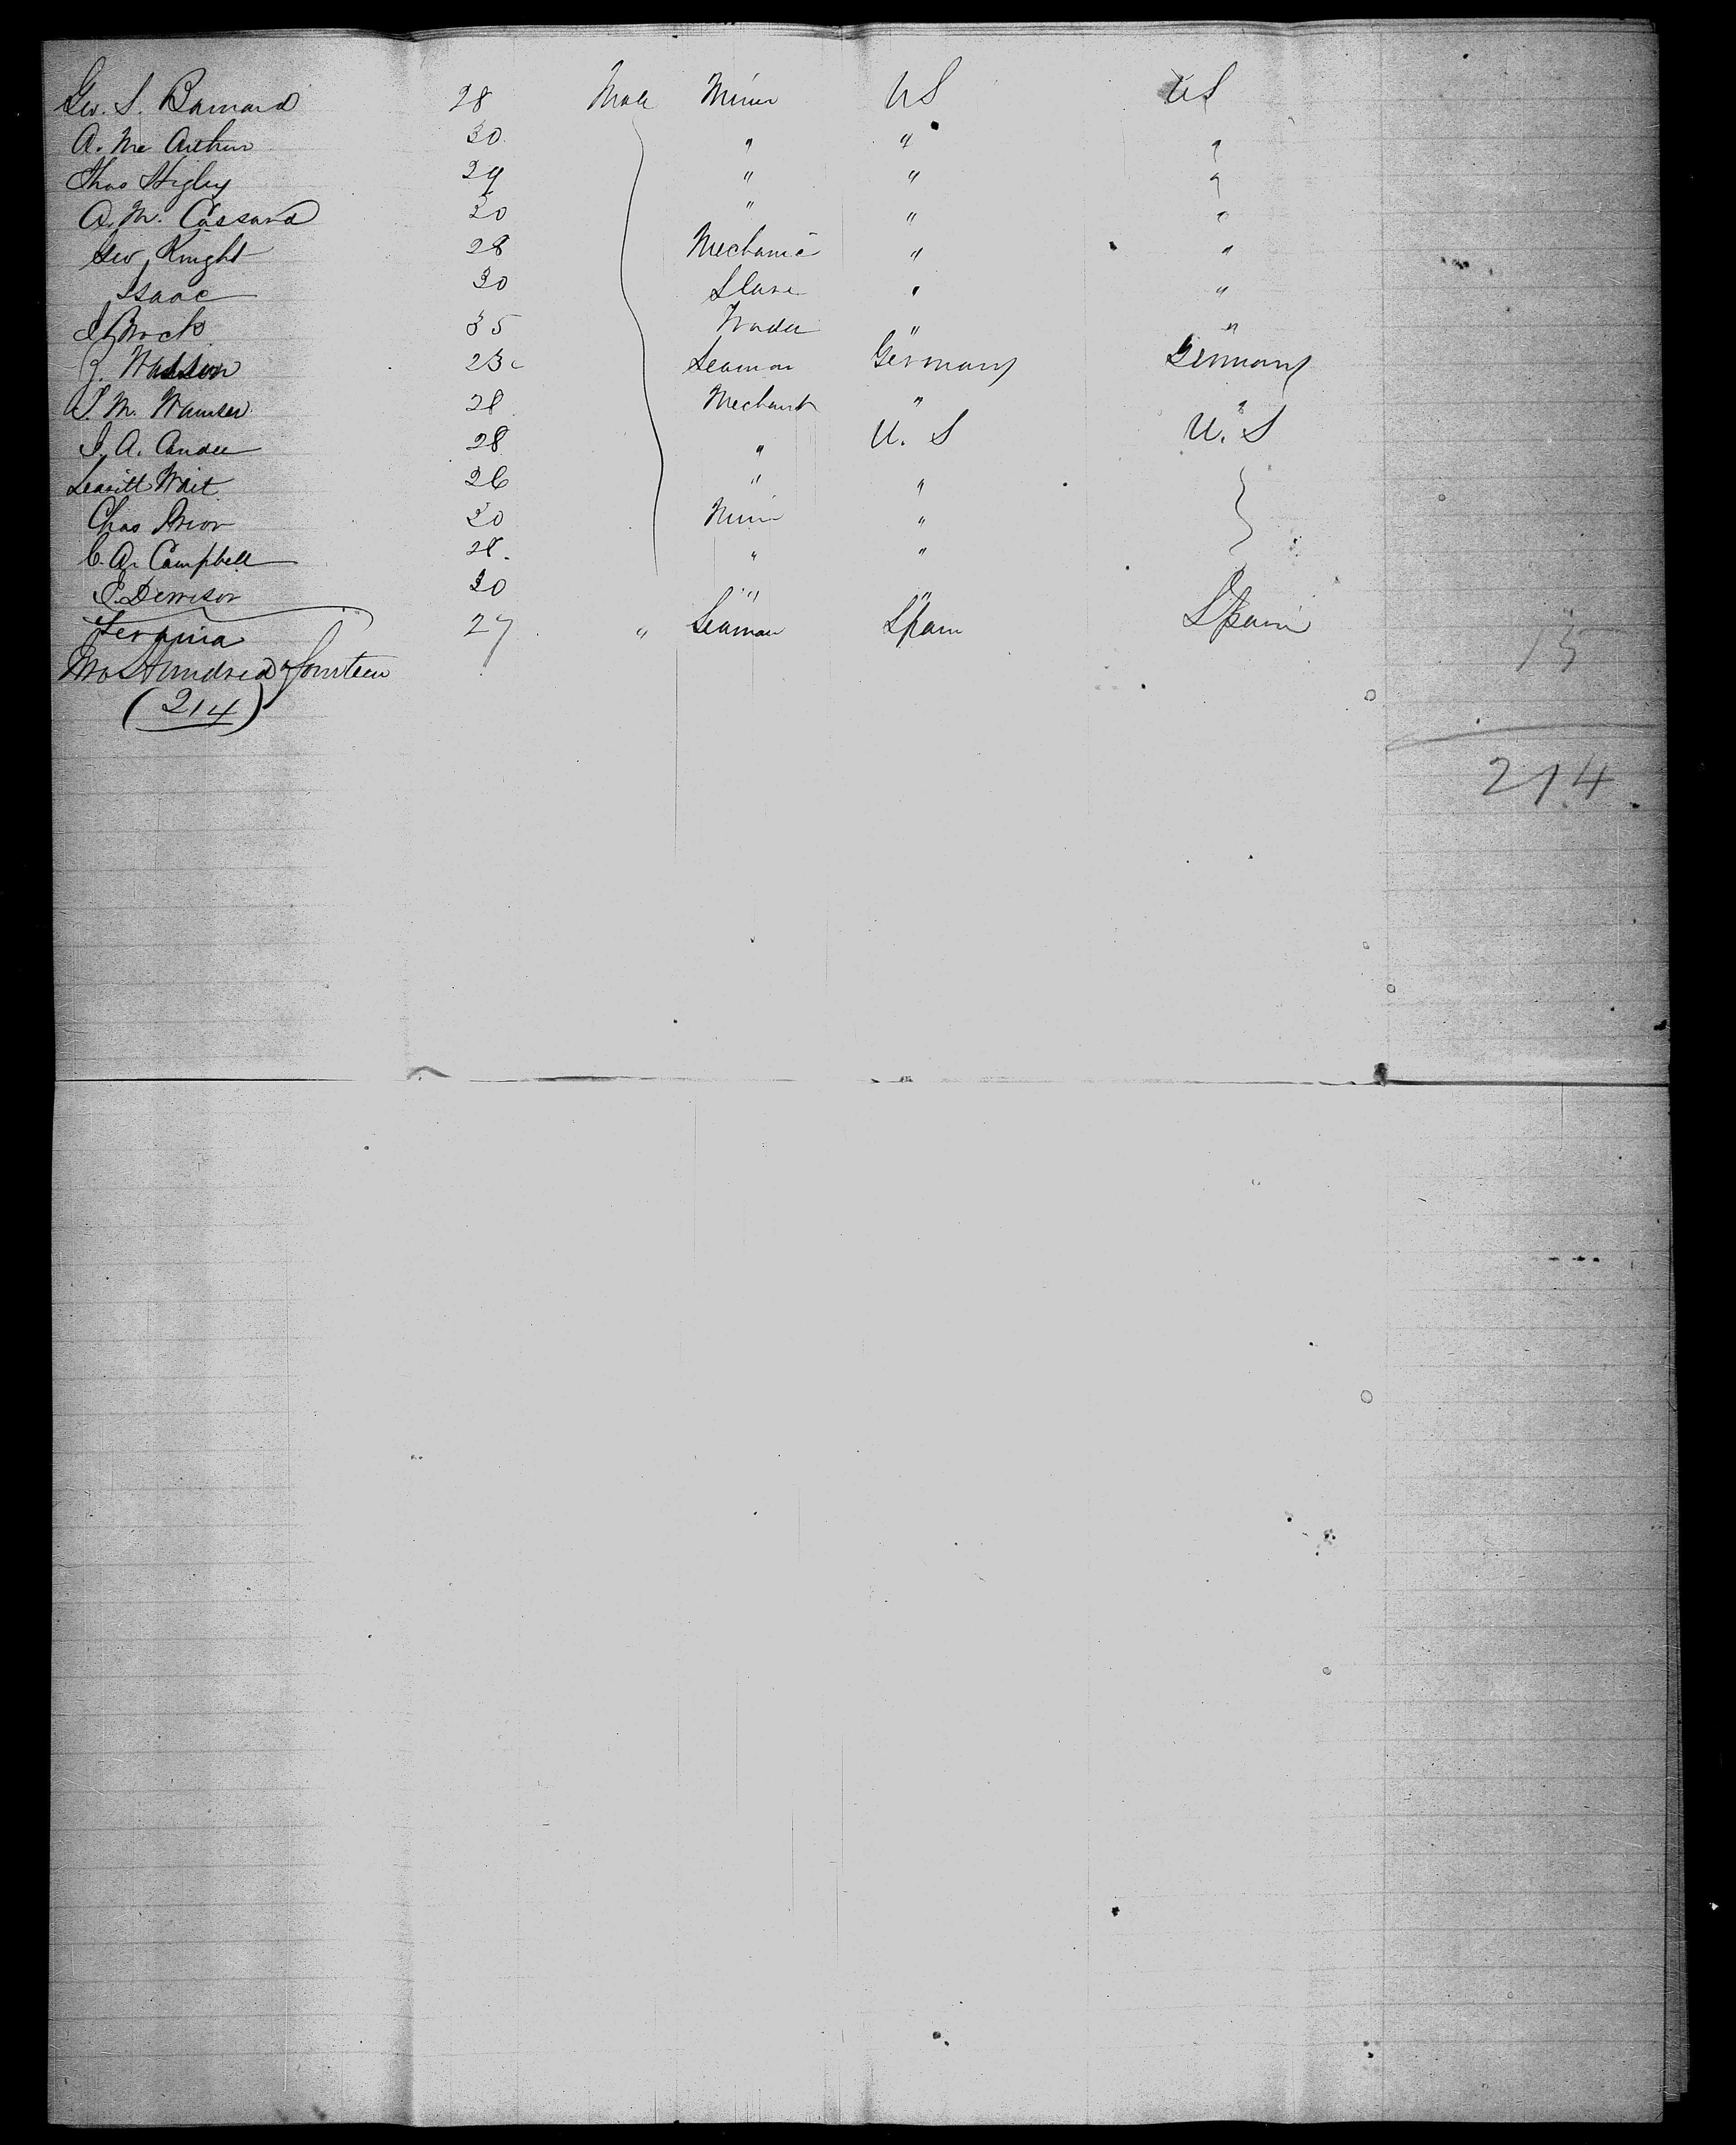 Geo. S. Barnard 28 Male Miner US US
A. Mc Arthur 30 " " "
Thos Higley 29 " " "
A. M. Cassard 30 " " "
Geo Knight 28 Mechanic " "
Isaac 30 Slave " "
J. Brock 35 Trader " "
J. 23 Seaman Germany Germany
S. M. 28 Mechanic " "
J. A. 28 " U. S U. S
Leavitt Wait 26 " "
Chas Prior 30 Miner "
C. A. Campbell 28 " "
Dennison 30 " "
27 " Seaman Spain Spain
Two Hundred & fourteen
(214)
15
214